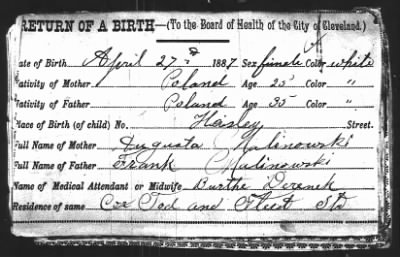 RETURN OF A BIRTH—(To the Board of Health of the City of Cleveland.)
ate of Birth April 27th 1887 Sex female Color white
ativity of Mother Poland Age 25 Color "
ativity of Father Poland Age 35 Color "
lace of Birth (of child) No. Street.
Full Name of Mother Augusta Malinowski
Full Name of Father Frank Malinowski
Name of Medical Attendant or Midwife
Residence of same Cor Tod and Fleet Sts